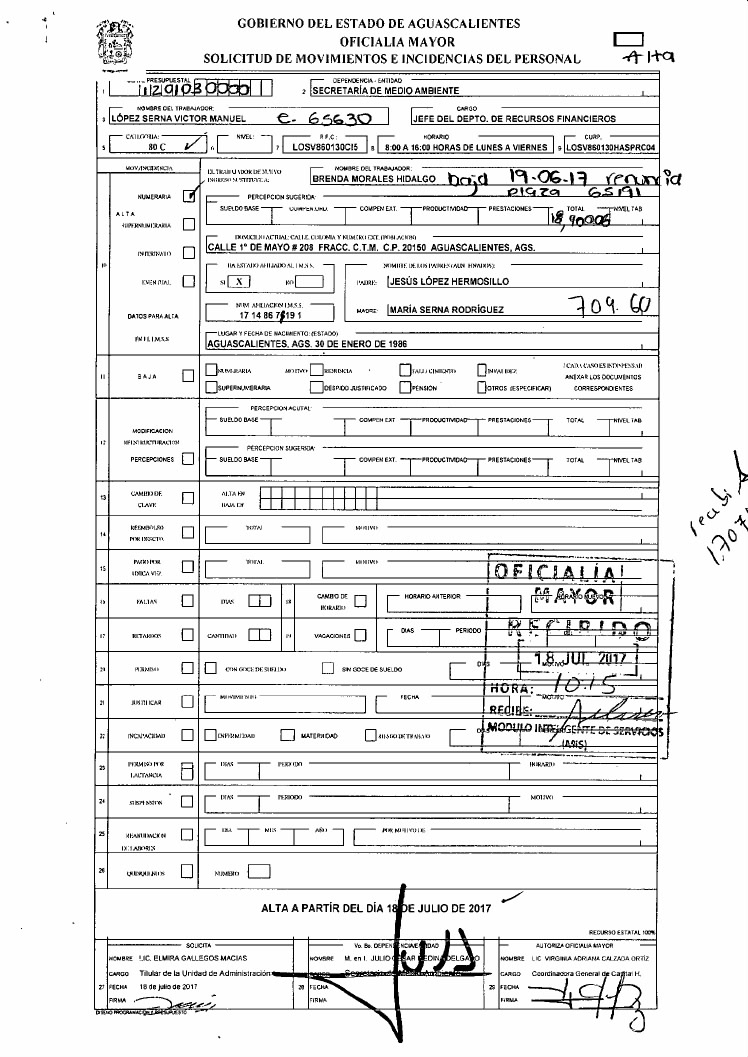 GOBIERNO DEL ESTADO DE AGUASCALIENTES
OFICIALIA MAYOR
SOLICITUD DE MOVIMIENTOS E INCIDENCIAS DEL PERSONAL
Alta
1 PRESUPUESTAL
2 DEPENDENCIA - ENTIDAD SECRETARÍA DE MEDIO AMBIENTE
3 NOMBRE DEL TRABAJADOR: LÓPEZ SERNA VICTOR MANUEL e- 65630
CARGO JEFE DEL DEPTO. DE RECURSOS FINANCIEROS
5 CATEGORIA: 80 C 6 NIVEL: 7 R.F.C.: LOSV860130CI5 8 HORARIO 8:00 A 16:00 HORAS DE LUNES A VIERNES 9 CURP. LOSV860130HASPRC04
MOV/INCIDENCIA
EL TRABAJADOR DE NUEVO INGRESO SUSTITUYE A:
NOMBRE DEL TRABAJADOR: BRENDA MORALES HIDALGO baja 19-06-17 renuncia
plaza 65191
10 ALTA
NUMERARIA
SUPERNUMERARIA
INTERINATO
EVENTUAL
DATOS PARA ALTA
EN EL I.M.S.S
PERCEPCION SUGERIDA:
SUELDO BASE COMPEN.ORD. COMPEN EXT. PRODUCTIVIDAD PRESTACIONES TOTAL NIVEL TAB
DOMICILIO ACTUAL: CALLE, COLONIA Y NUMERO EXT. (POBLACION)
CALLE 1° DE MAYO # 208 FRACC. C.T.M. C.P. 20150 AGUASCALIENTES, AGS.
HA ESTADO AFILIADO AL I.M.S.S.
SI X NO
NOMBRE DE LOS PADRES (AUN FINADOS):
PADRE: JESÚS LÓPEZ HERMOSILLO
NUM. AFILIACION I.M.S.S.
MADRE: MARÍA SERNA RODRÍGUEZ 709.60
LUGAR Y FECHA DE NACIMIENTO: (ESTADO)
AGUASCALIENTES, AGS. 30 DE ENERO DE 1986
11 BAJA
NUMERARIA MOTIVO RENUNCIA FALLECIMIENTO INVALIDEZ
SUPERNUMERARIA DESPIDO JUSTIFICADO PENSIÓN OTROS (ESPECIFICAR)
ANEXAR LOS DOCUMENTOS
CORRESPONDIENTES
12 MODIFICACION
REESTRUCTURACION
PERCEPCIONES
PERCEPCION ACUTAL:
SUELDO BASE COMPEN EXT PRODUCTIVIDAD PRESTACIONES TOTAL NIVEL TAB
PERCEPCION SUGERIDA:
SUELDO BASE COMPEN EXT. PRODUCTIVIDAD PRESTACIONES TOTAL NIVEL TAB
13 CAMBIO DE CLAVE ALTA EN BAJA EN
14 REEMBOLSO POR DESCTO. TOTAL MOTIVO
15 PAGO POR UNICA VEZ TOTAL MOTIVO
16 FALTAS DIAS 18 CAMBIO DE HORARIO HORARIO ANTERIOR HORARIO NUEVO
17 RETARDOS CANTIDAD 19 VACACIONES DIAS PERIODO
20 PERMISO CON GOCE DE SUELDO SIN GOCE DE SUELDO DIAS
21 JUSTIFICAR MOVIMIENTO FECHA MOTIVO
22 INCAPACIDAD ENFERMEDAD MATERNIDAD RIESGO DE TRABAJO
23 PERMISO POR LACTANCIA DIAS PERIODO HORARIO
24 SUSPENSION DIAS PERIODO MOTIVO
25 REANUDACION DE LABORES DIA MES AÑO POR MOTIVO DE
26 QUINQUENIOS NUMERO
OFICIALIA
MAYOR
RECIBIDO
18 JUL 2017
HORA: 10:15
RECIBE:
MODULO INTELIGENTE DE SERVICIOS
(MIS)
ALTA A PARTÍR DEL DÍA 18 DE JULIO DE 2017
RECURSO ESTATAL 100%
SOLICITA
NOMBRE LIC. ELMIRA GALLEGOS MACIAS
CARGO Titular de la Unidad de Administración
27 FECHA 18 de julio de 2017
FIRMA
Vo. Bo. DEPENDENCIA/ENTIDAD
NOMBRE M. en I. JULIO CÉSAR MEDINA DELGADO
CARGO Secretario de Medio Ambiente
28 FECHA
FIRMA
AUTORIZA OFICIALIA MAYOR
NOMBRE LIC. VIRGINIA ADRIANA CALZADA ORTIZ
CARGO Coordinadora General de Capital H.
29 FECHA
FIRMA
DISEÑO PROGRAMACION Y PRESUPUESTO